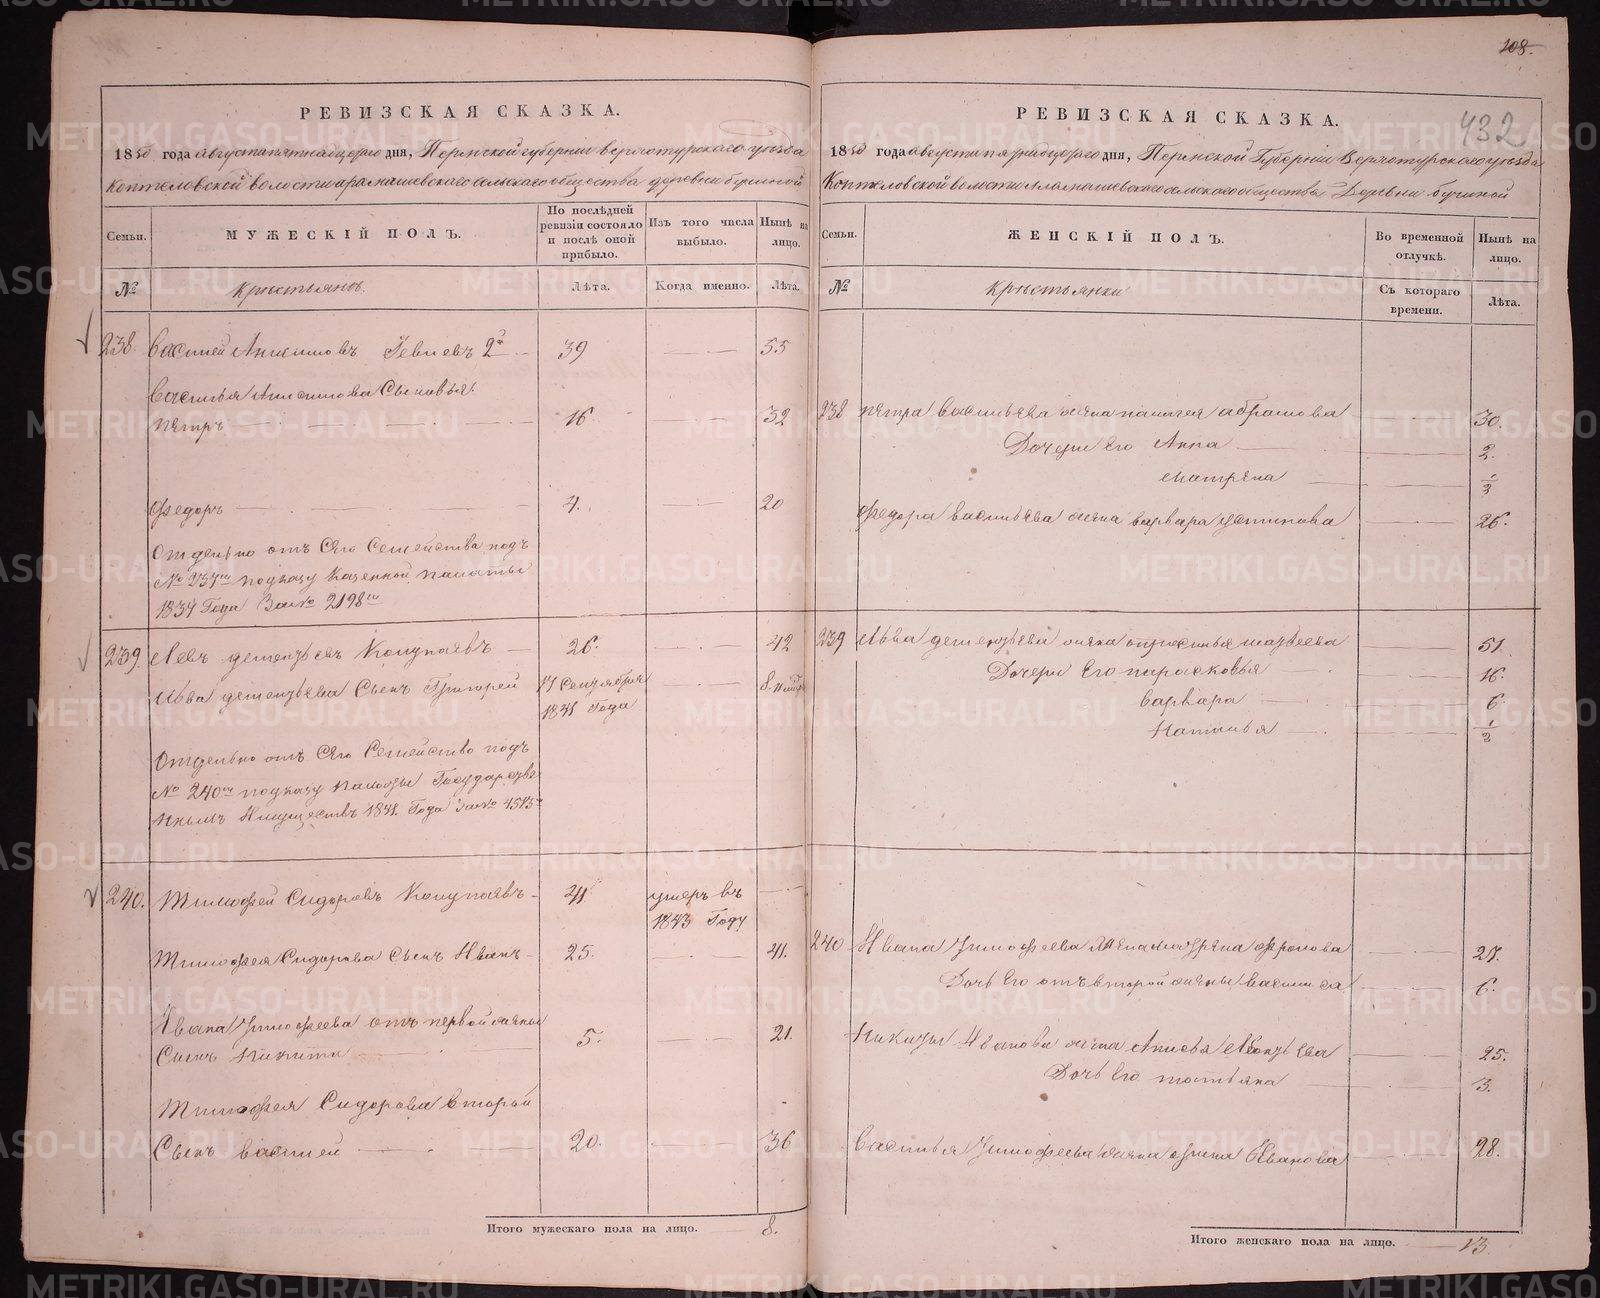 108.
432
РЕВИЗСКАЯ СКАЗКА.
1850 года августа пятнадцатаго дня, Пермской губернии верхотурскаго уезда
Коптеловской волости арамашевскаго сельскаго общества деревни бучиной
Семьи.
МУЖЕСКІЙ ПОЛЪ.
По послѣдней ревизіи состояло и послѣ оной прибыло.
Изъ того числа выбыло.
Нынѣ на лицо.
№
Крестьянъ.
Лѣта.
Когда именно.
Лѣта.
238. Василей Анисимовъ 2й 39 55
Васильья Анисимова Сыновья.
петръ 16 32
Федоръ 4. 20
Отдельно отъ Сего Семейства подъ
№ 237мъ поуказу Казенной палаты
1834 Года За № 2198м
239 Левъ дементьевъ 26. 42
Льва дементьева Сынъ Григорей 17 Сентября 8.
1841 Года
Отдельно отъ Сего Семейство подъ
№ 240мъ поуказу палаты Государстве
нныхъ Имуществъ 1841. Года за №
240. Тимофей Сидоровъ 41 умеръ въ
1843 Году
Тимофея Сидорова Сынъ Иванъ 25. 41.
Ивана Тимофеева отъ первой жены
Сынъ Никита 5. 21.
Тимофея Сидорова второй
Сынъ Василей 20. 36
Итого мужескаго пола на лицо. 8.
РЕВИЗСКАЯ СКАЗКА.
1850 года августа пятнадцатаго дня, Пермской Губерніи Верхотурскаго уезда
Коптеловской волости Арамашевскаго сельскаго общества Деревни бучиной
Семьи.
ЖЕНСКІЙ ПОЛЪ.
Во временной отлучкѣ.
Нынѣ на лицо.
№
Крестьянки
Съ котораго времени.
Лѣта.
238 петра Васильева жена палагея абрамова 30.
Дочери Его Анна 2.
Матрена 1/2
Федора васильева жена варвара устинова 26.
239 Льва дементьева жена матвеева 51.
Дочери Его парасковья 16.
Варвара 6.
Наталья 1/2
240 Ивана Тимофеева жена матрена фролова 27.
Дочь Его отъ второй жены василиса 6.
Никиты Иванова жена Анисья Леонтьева 25.
Дочь Его татьяна 3.
Васильья Тимофеева жена Ирина Иванова 28.
Итого женскаго пола на лицо. 13